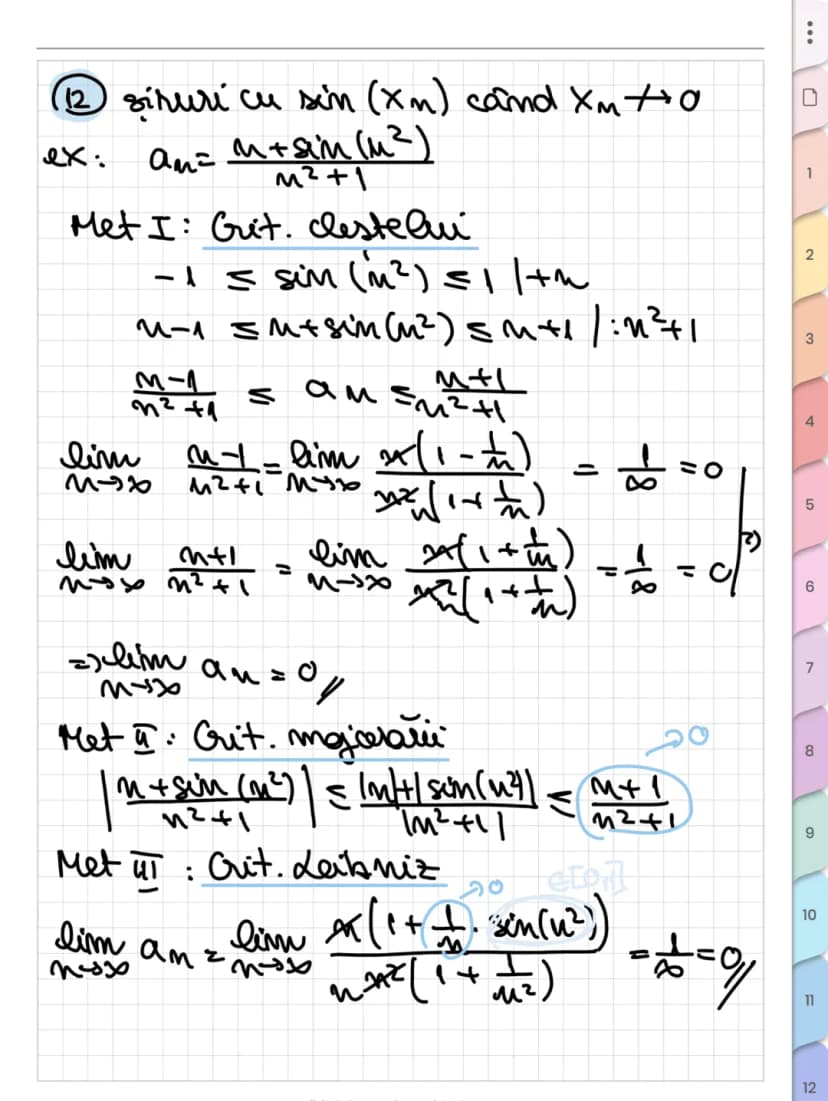 ⑫ șiruri cu sin (xn) când xn ↛ 0
ex: an = n+sin(n²) / n²+1
Met I: Crit. cleștelui
-1 ≤ sin(n²) ≤ 1 |+n
n-1 ≤ n+sin(n²) ≤ n+1 |:n²+1
n-1 / n²+1 ≤ an ≤ n+1 / n²+1
lim n→∞ n-1 / n²+1 = lim n→∞ n(1-1/n) / n²(1+1/n) = 1/∞ = 0
lim n→∞ n+1 / n²+1 = lim n→∞ n(1+1/n) / n²(1+1/n) = 1/∞ = 0 | =>
=> lim n→∞ an = 0
Met II: Crit. majorării
|n+sin(n²) / n²+1| ≤ |n|+|sin(n²)| / |n²+1| ≤ n+1 / n²+1 → 0
Met III: Crit. Leibniz
lim n→∞ an = lim n→∞ n(1+1/n · sin(n²)) / n²(1+1/n²) = 1/∞ = 0
→0
1
2
3
4
5
6
7
8
9
10
11
12